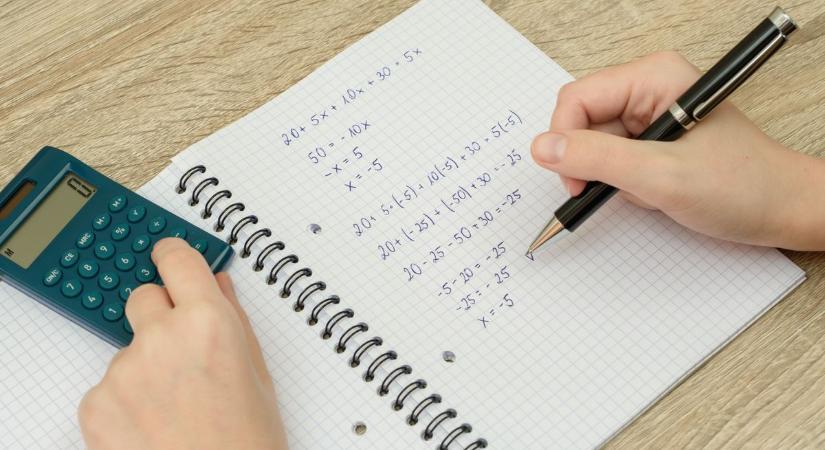 20+ 5x + 10x + 30 = 5x
50 = -10x
-x = 5
x = -5
20+ 5·(-5) + 10(-5) + 30 = 5(-5)
20+ (-25) + (-50) +30 = -25
20 - 25 - 50 + 30 = -25
-5 - 20 = -25
-25 = -25
x = -5
M
M- M+
MRC % √
CE 9 6
ON/C 8 5 3
7 4 2
1